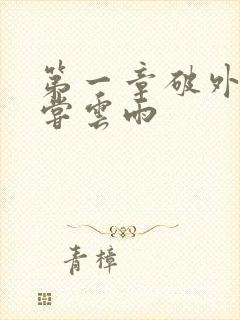 第一章破外
尝雲雨
青樟